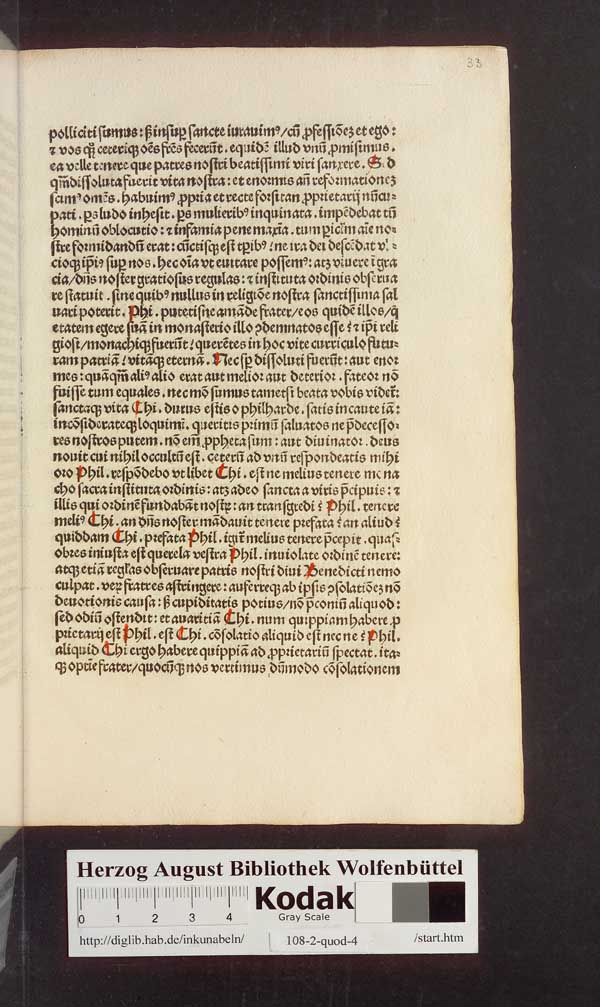 33
polliciti sumus: ſꝫ insuꝑ sancte iurauimꝰ/cū ꝓfessiōeꝫ et ego:
⁊ vos qꝫ ceteriqꝫ oēs frēs fecerūt. equidē illud vnū ꝓmisimus.
ea velle tenere que patres nostri beatissimi viri sanxere. S d
qm̄ dissoluta fuerit vita nostra: et enormis an̄ reformationeꝫ
scimꝰ omēs. habuimꝰ ꝓpria et recte forsitan ꝓprietarij nūcu-
pati. ꝑs ludo inhesit. ꝑs mulieribꝰ inquinata. impēdebat tū
hominū oblocutio: ⁊ infamia pene maxīa. tum ꝑiclm̄ aīe no-
stre formidandū erat: cūctisqꝫ est tꝑibꝰ/ne ira dei descēdat vl-
cioqꝫ ip̄iꝰ suꝑ nos. hec oīa vt euitare possemꝰ: atqꝫ viuere ī gra
cia/dn̄s noster gratiosus regulas: ⁊ instituta ordinis obserua
re statuit. sine quibꝰ nullus in religiōe nostra sanctissima sal
uari poterit. Phi. putetisne amāde frater/eos quidē illos/q̄
etatem egere suā in monasterio illo ꝯdemnatos esse ⁊ ip̄i reli
giosi/monachiqꝫ fuerūt/querētes in hoc vite curriculo futu-
ram patriā/vitāqꝫ eternā. Nec sꝑ dissoluti fuerūt: aut enor
mes: quāqm̄ aliꝰ alio erat aut melior aut deterior. fateor nō
fuisse tum equales. nec mō sumus tametsi beata vobis videt̄:
sanctaqꝫ vita Chi. durus estis o philharde. satis incaute iā:
incōsiderateqꝫ loquimī. queritis primū saluatos ne p̄decesso-
res nostros putem. nō em̄ ꝓpheta sum: aut diuinator. deus
nouit cui nihil occultū est. ceterū ad vnū respondeatis mihi
oro Phil. respōdebo vt libet Chi. est ne melius tenere mona
cho sacra instituta ordinis: atqꝫ adeo sancta a viris p̄cipuis: ⁊
illis qui ordinē fundabāt nostrꝫ: an transgredi Phil. tenere
meliꝰ Chi. an dn̄s noster mādauit tenere prefata an aliud
quiddam Chi. prefata Phil. igit̄ melius tenere p̄cepit. quas
obres iniusta est querela vestra Phil. inuiolate ordinē tenere:
atque etiā regl̄as obseruare patris nostri diui Benedicti nemo
culpat. veꝝ fratres astringere: auferreqꝫ ab ipsis ꝯsolatiōeꝫ nō
deuotionis causa: ſꝫ cupiditatis potius/nō p̄coniū aliquod:
sed odiū ostendit: et auaritiā Chi. num quippiam habere ꝓ
prietarij est Phil. est Chi. cōsolatio aliquid est nec ne Phil.
aliquid Chi ergo habere quippiā ad ꝓprietariū spectat. ita-
qꝫ optīe frater/quocūqꝫ nos vertimus dūmodo cōsolationem
Herzog August Bibliothek Wolfenbüttel
0 1 2 3 4
Kodak
Gray Scale
http://diglib.hab.de/inkunabeln/ 108-2-quod-4 /start.htm